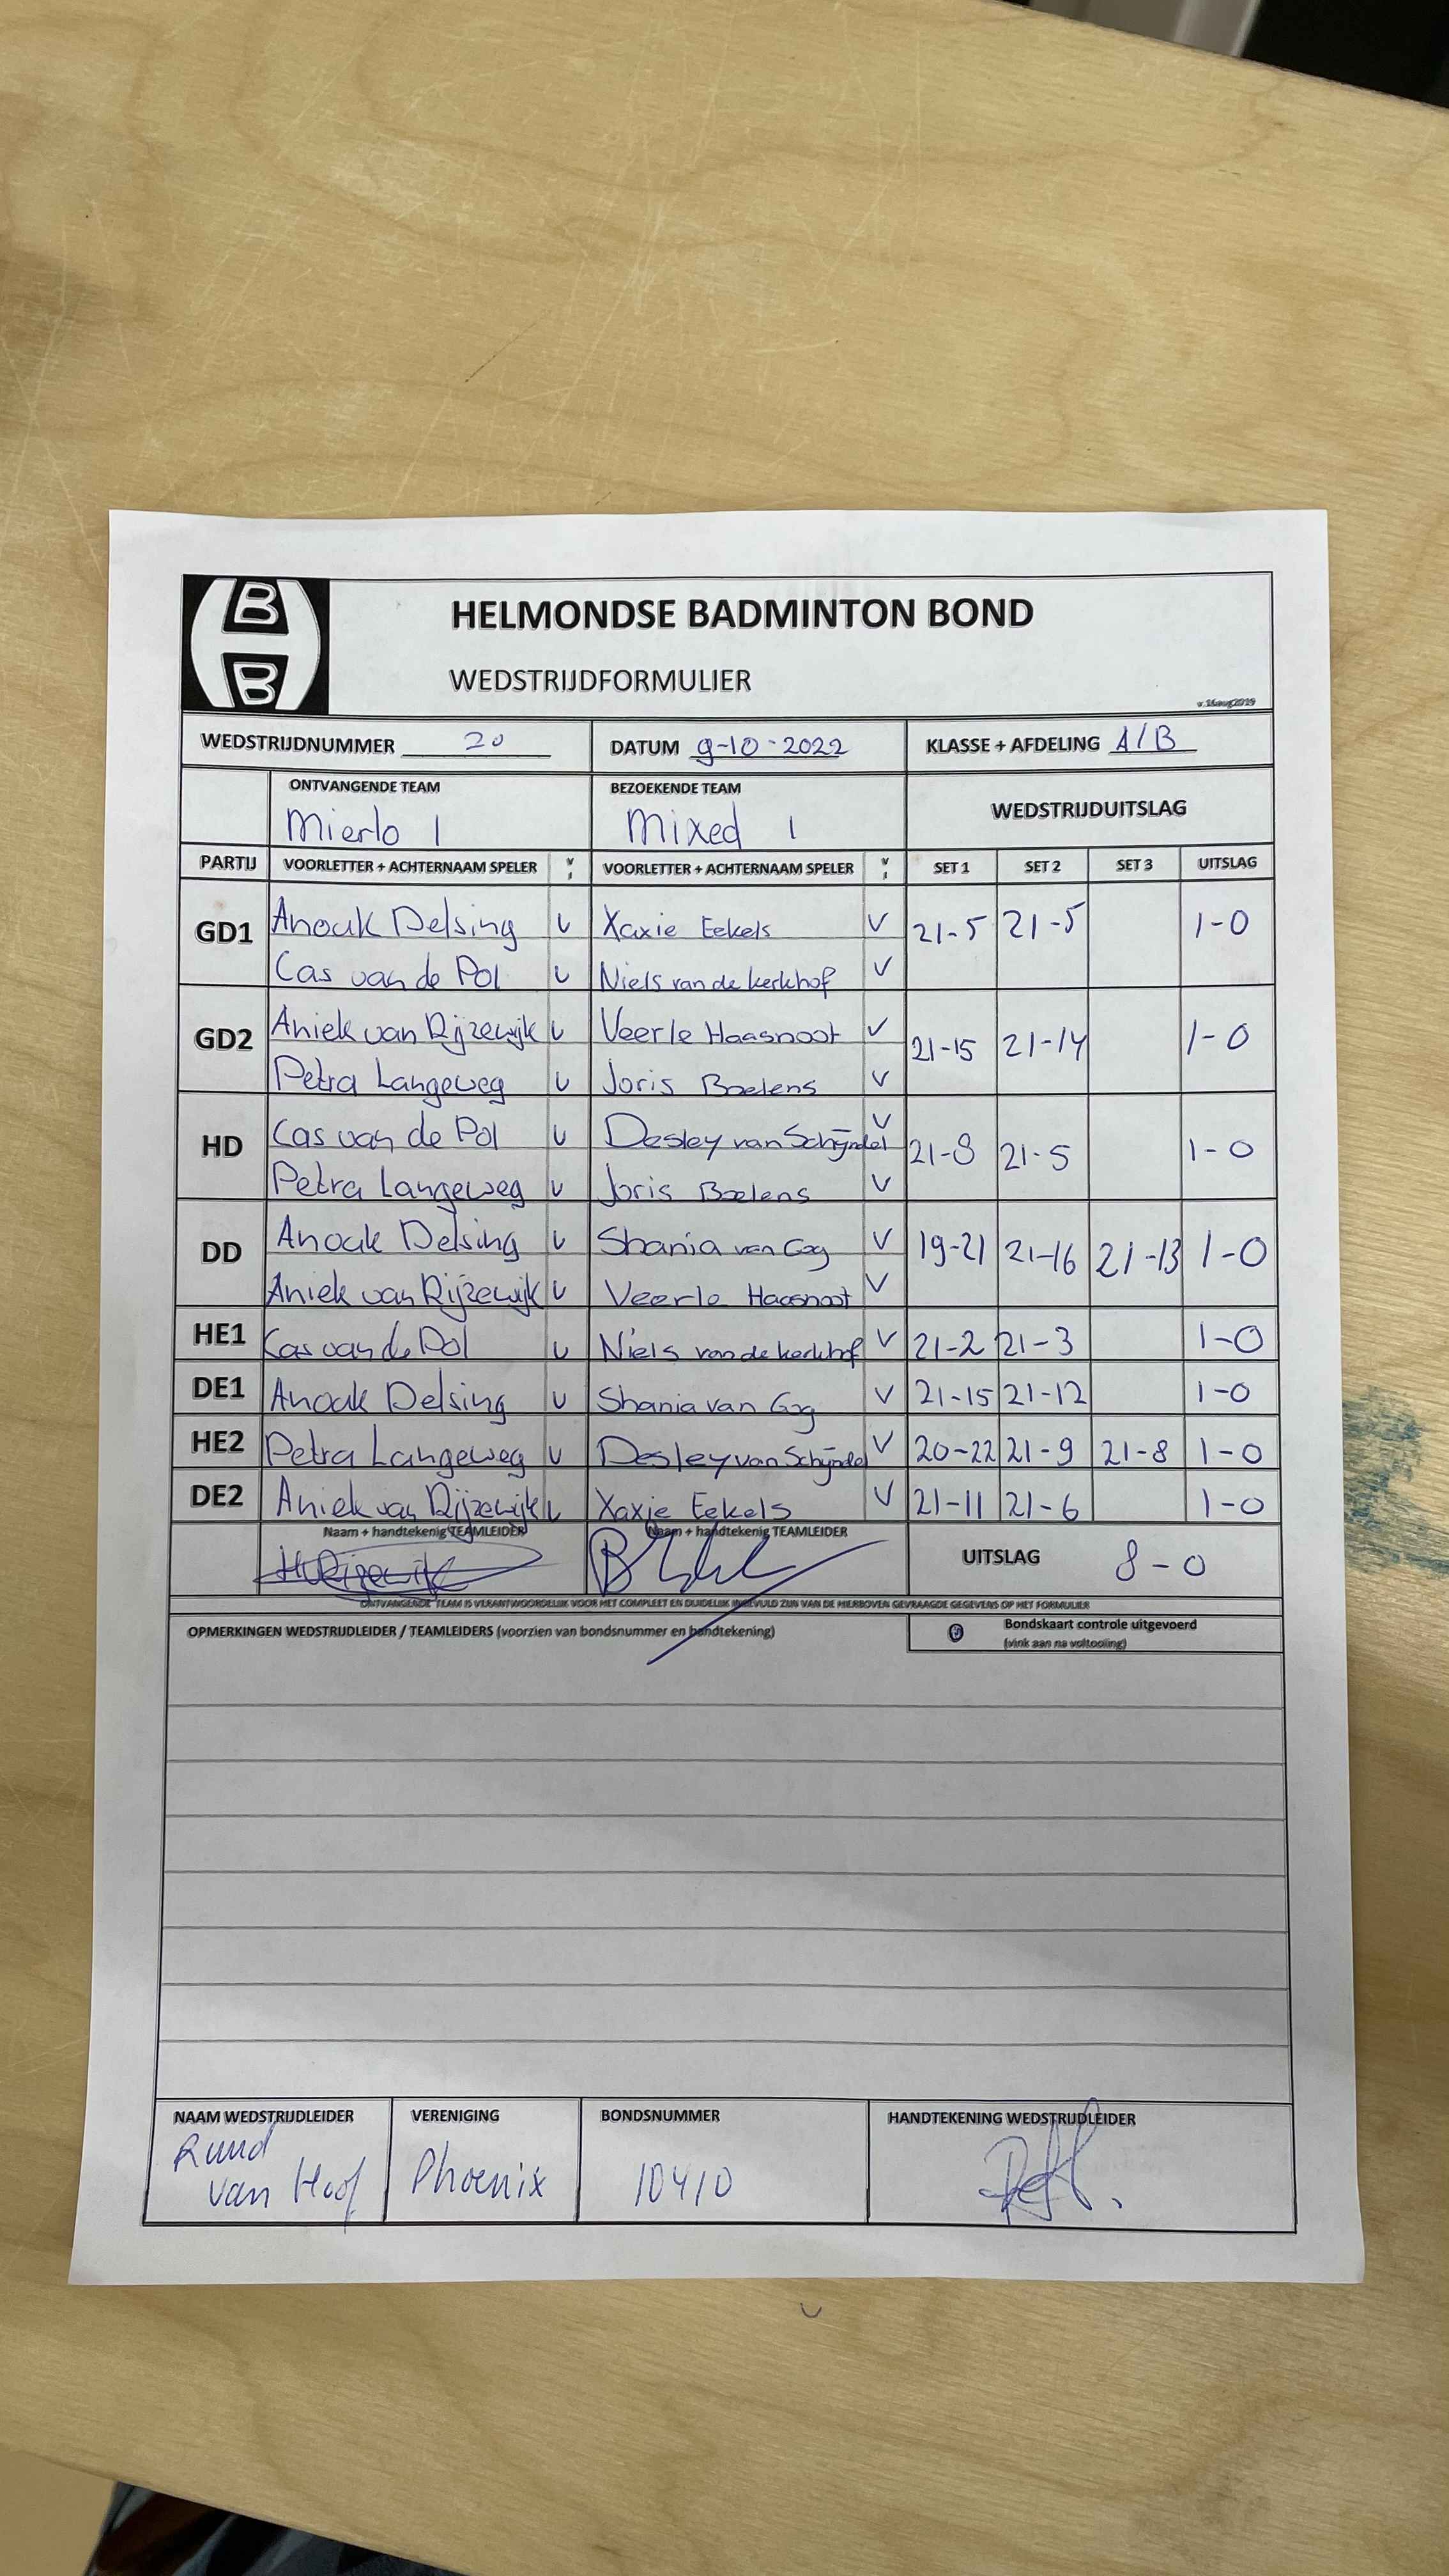 B
B
HELMONDSE BADMINTON BOND
WEDSTRIJDFORMULIER
v.16aug2019
WEDSTRIJDNUMMER 20 DATUM 9-10-2022 KLASSE + AFDELING A/B
ONTVANGENDE TEAM BEZOEKENDE TEAM WEDSTRIJDUITSLAG
Mierlo 1 Mixed 1
PARTIJ VOORLETTER + ACHTERNAAM SPELER v ; VOORLETTER + ACHTERNAAM SPELER v ; SET 1 SET 2 SET 3 UITSLAG
GD1 Anouk Delsing v Xaxie Eekels v 21-5 21-5 1-0
Cas van de Pol v Niels van de kerkhof v
GD2 Aniek van Rijzewijk v Veerle Haasnoot v 21-15 21-14 1-0
Petra Langeweg v Joris Boelens v
HD Cas van de Pol v Desley van Schijndel v 21-8 21-5 1-0
Petra Langeweg v Joris Boelens v
DD Anouk Delsing v Shania van Gog v 19-21 21-16 21-13 1-0
Aniek van Rijzewijk v Veerle Haasnoot v
HE1 Cas van de Pol v Niels van de kerkhof v 21-2 21-3 1-0
DE1 Anouk Delsing v Shania van Gog v 21-15 21-12 1-0
HE2 Petra Langeweg v Desley van Schijndel v 20-22 21-9 21-8 1-0
DE2 Aniek van Rijzewijk v Xaxie Eekels v 21-11 21-6 1-0
Naam + handtekenig TEAMLEIDER Naam + handtekenig TEAMLEIDER
UITSLAG 8-0
ONTVANGENDE TEAM IS VERANTWOORDELIJK VOOR HET COMPLEET EN DUIDELIJK INGEVULD ZIJN VAN DE HIERBOVEN GEVRAAGDE GEGEVENS OP HET FORMULIER
OPMERKINGEN WEDSTRIJDLEIDER / TEAMLEIDERS (voorzien van bondsnummer en handtekening) Bondskaart controle uitgevoerd
(vink aan na voltooiing)
NAAM WEDSTRIJDLEIDER VERENIGING BONDSNUMMER HANDTEKENING WEDSTRIJDLEIDER
Ruud
van Hoof Phoenix 10410